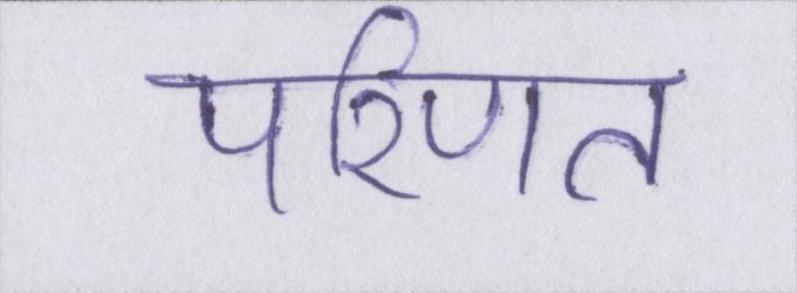 परिणत